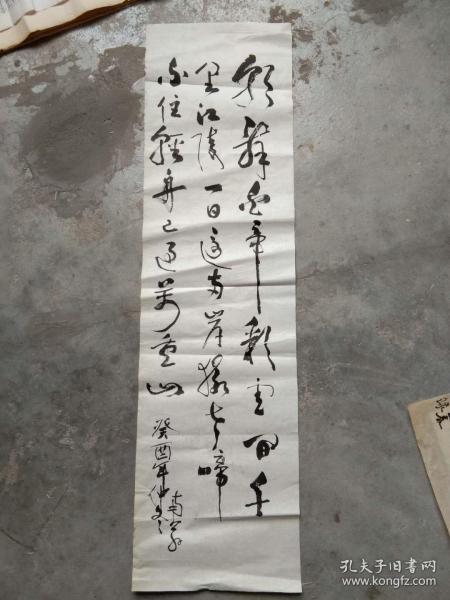 朝辭白帝彩雲間千
里江陵一日還兩岸猿聲啼
不住輕舟已過萬重山
癸酉年仲冬
南
孔夫子旧书网
www.kongfz.com